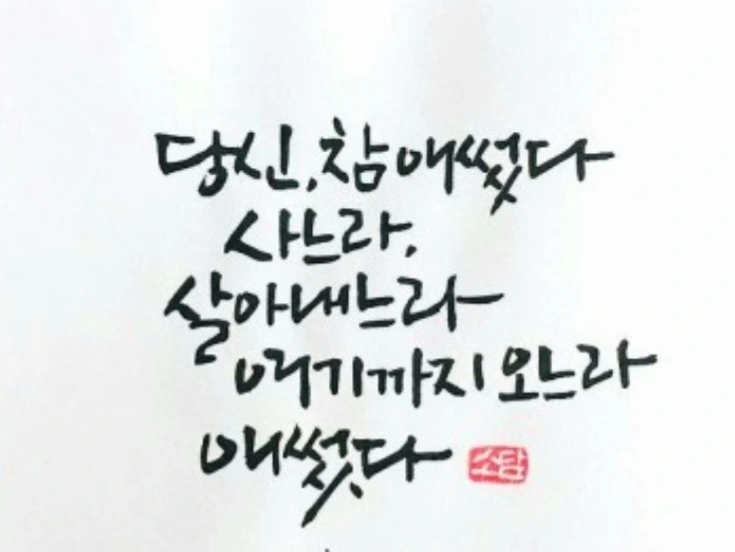 당신, 참 애썼다
사느라,
살아내느라
여기까지 오느라
애썼다
소담